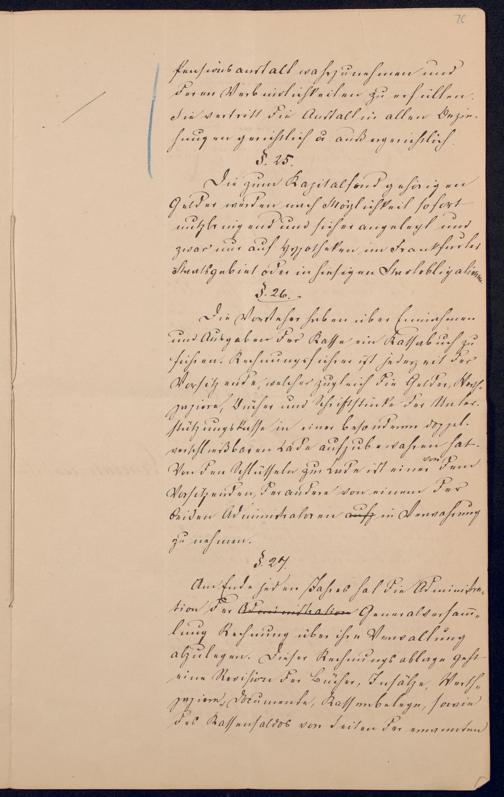 70
Pensionsanstalt wahrzunehmen und
deren Verbindlichkeiten zu erfüllen.
Sie vertritt die Anstalt in allen Bezie-
hungen gerichtlich u. außergerichtlich.
§. 25.
Die zum Kapitalfond gehörigen
Gelder werden nach Möglichkeit sofort
nutzbringend und sicher angelegt und
zwar nur auf Hypotheken im Frankfurter
Staatsgebiet oder in hiesigen Staatsobligationen
§. 26.
Die Vorsteher haben über Einnahmen
und Ausgaben der Kasse ein Kassabuch zu
führen. Rechnungsführer ist jederzeit der
Vorsitzende, welcher zugleich die Gelder, Werth-
papiere, Bücher und Schriftstücke der Unter-
stützungskasse in einer besonderen doppel-
verschließbaren Lade aufzubewahren hat.
Von den Schlüsseln zur Lade ist einer von dem
Vorsitzenden, der andere von einem der
beiden Administratoren auf in Verwahrung
zu nehmen.
§. 27
Am Ende jeden Jahres hat die Administra-
tion der Administration Generalversamm-
lung Rechnung über ihre Verwaltung
abzulegen. Dieser Rechnungsablage geht
eine Revision der Bücher, Insätze, Werth-
papiere, Documente, Kassenbelege, sowie
des Kassensaldos von Seiten der ernannten